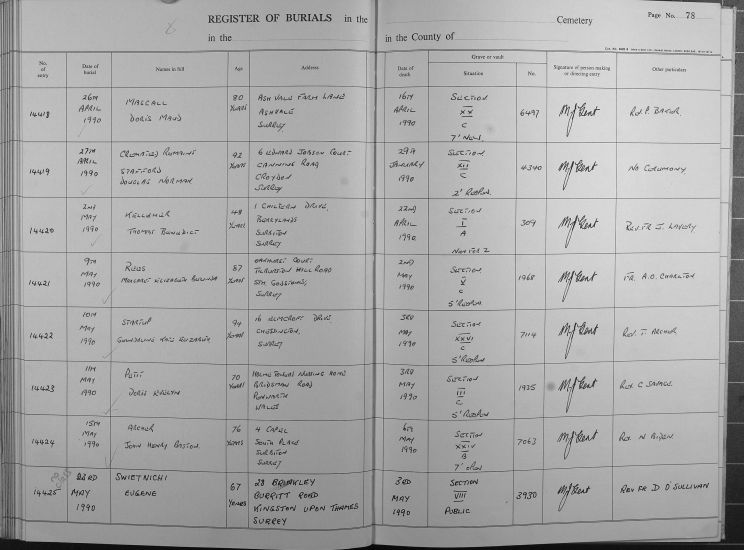 REGISTER OF BURIALS in the
Cemetery
Page No. 78
in the
in the County of
No. of entry
Date of burial
Names in full
Age
Address
Date of death
Grave or vault
Situation
No.
Signature of person making or directing entry
Other particulars
14418
26TH APRIL 1990
MASCALL
DORIS MAUD
80 YEARS
ASH VALE FARM LANE
ASHVALE
SURREY
16TH APRIL 1990
SECTION
XX
C
7' NEW.
6497
M J Gent
REV. P. BAKER
14419
27TH APRIL 1990
CREMATED REMAINS
STAFFORD
DOUGLAS NORMAN
92 YEARS
6 EDWARD JOBSON COURT
CANNING ROAD
CROYDON
SURREY
JANUARY 1990
SECTION
XII
C
2' REOPEN.
4340
M J Gent
NO CEREMONY
14420
2ND MAY 1990
THOMAS BENEDICT
48 YEARS
1 CHILTERN DRIVE,
BERRYLANDS
SURBITON
SURREY
22ND APRIL 1990
SECTION
I
A
309
M J Gent
REV. FR J. LAVERY
14421
9TH MAY 1990
MARGARET ELIZABETH BELINDA
87 YEARS
OAKHURST COURT
HILL ROAD
STH. GODSTONE,
SURREY
2ND MAY 1990
SECTION
X
C
5' REOPEN
1968
M J Gent
FR. A.O. CHARLTON
14422
10TH MAY 1990
STARTUP
ELIZABETH
94 YEARS
16 ELMCROFT DRIVE,
CHESSINGTON,
SURREY
3RD MAY 1990
SECTION
XXVI
C
5' REOPEN
7114
M J Gent
REV. T. ARCHER
14423
11TH MAY 1990
PETTT
DORIS EVELYN
70 YEARS
HOLME TOWERS NURSING HOME
BRIDGEMAN ROAD
PENARTH
WALES
3RD MAY 1990
SECTION
III
C
5' REOPEN
1935
M J Gent
REV C SAVAGE.
14424
15TH MAY 1990
ARCHER
JOHN HENRY BOSTON.
76 YEARS
4 CAPEL
SOUTH PLACE
SURBITON
SURREY
6TH MAY 1990
SECTION
XXIV
B
7' OPEN
7063
M J Gent
REV. N BIDEN.
14425
23RD MAY 1990
SWIETNICHI
EUGENE
67 YEARS
28 BRINKLEY
BURRITT ROAD
KINGSTON UPON THAMES
SURREY
3RD MAY 1990
SECTION
VIII
PUBLIC
3930
M J Gent
REV FR D O'SULLIVAN